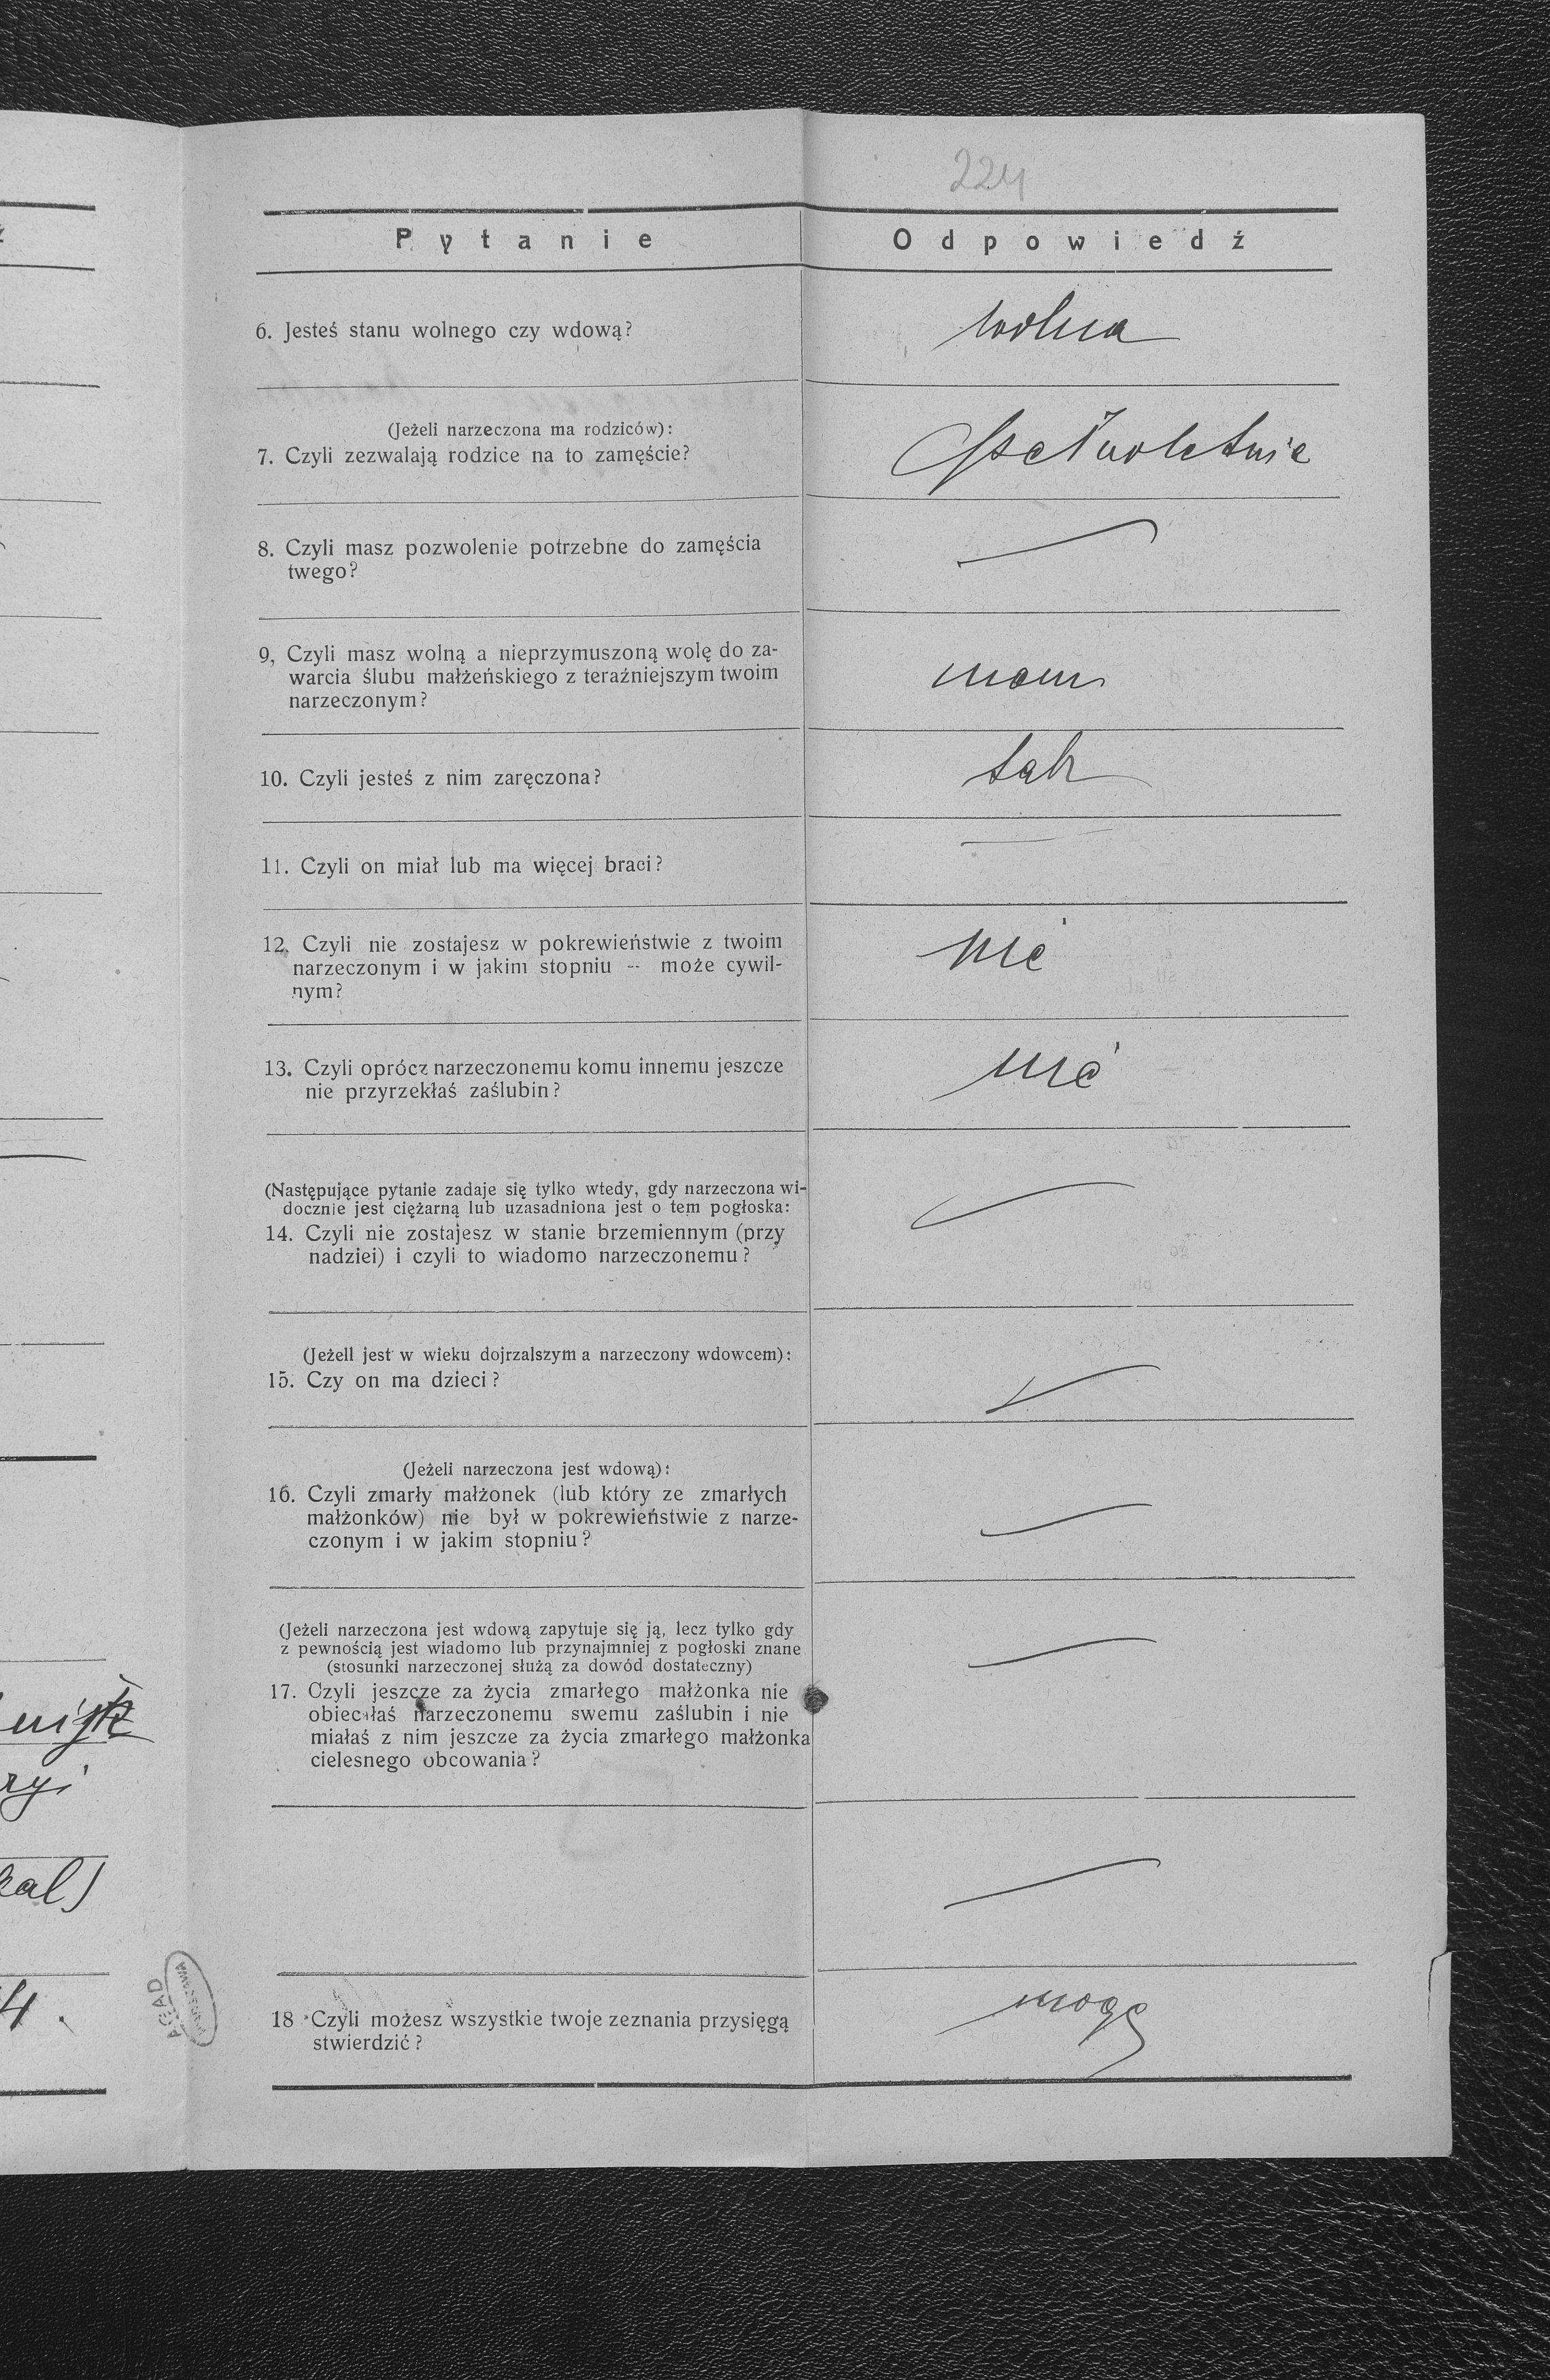 224
Pytanie
Odpowiedź
6. Jesteś stanu wolnego czy wdową?
wolna
(Jeżeli narzeczona ma rodziców):
7. Czyli zezwalają rodzice na to zamęście?
pełnoletnie
8. Czyli masz pozwolenie potrzebne do zamęścia
twego?
9, Czyli masz wolną a nieprzymuszoną wolę do za-
warcia ślubu małżeńskiego z teraźniejszym twoim
narzeczonym?
mam
10. Czyli jesteś z nim zaręczona?
tak
11. Czyli on miał lub ma więcej braci?
12. Czyli nie zostajesz w pokrewieństwie z twoim
narzeczonym i w jakim stopniu -- może cywil-
nym?
nie
13. Czyli oprócz narzeczonemu komu innemu jeszcze
nie przyrzekłaś zaślubin?
nie
(Następujące pytanie zadaje się tylko wtedy, gdy narzeczona wi-
docznie jest ciężarną lub uzasadniona jest o tem pogłoska:
14. Czyli nie zostajesz w stanie brzemiennym (przy
nadziei) i czyli to wiadomo narzeczonemu?
(Jeżell jest w wieku dojrzalszym a narzeczony wdowcem):
15. Czy on ma dzieci?
(Jeżeli narzeczona jest wdową):
16. Czyli zmarły małżonek (lub który ze zmarłych
małżonków) nie był w pokrewieństwie z narze-
czonym i w jakim stopniu?
(Jeżeli narzeczona jest wdową zapytuje się ją, lecz tylko gdy
z pewnością jest wiadomo lub przynajmniej z pogłoski znane
(stosunki narzeczonej służą za dowód dostateczny)
17. Czyli jeszcze za życia zmarłego małżonka nie
obiecałaś narzeczonemu swemu zaślubin i nie
miałaś z nim jeszcze za życia zmarłego małżonka
cielesnego obcowania?
18 Czyli możesz wszystkie twoje zeznania przysięgą
stwierdzić?
mogę
AGAD
WARSZAWA